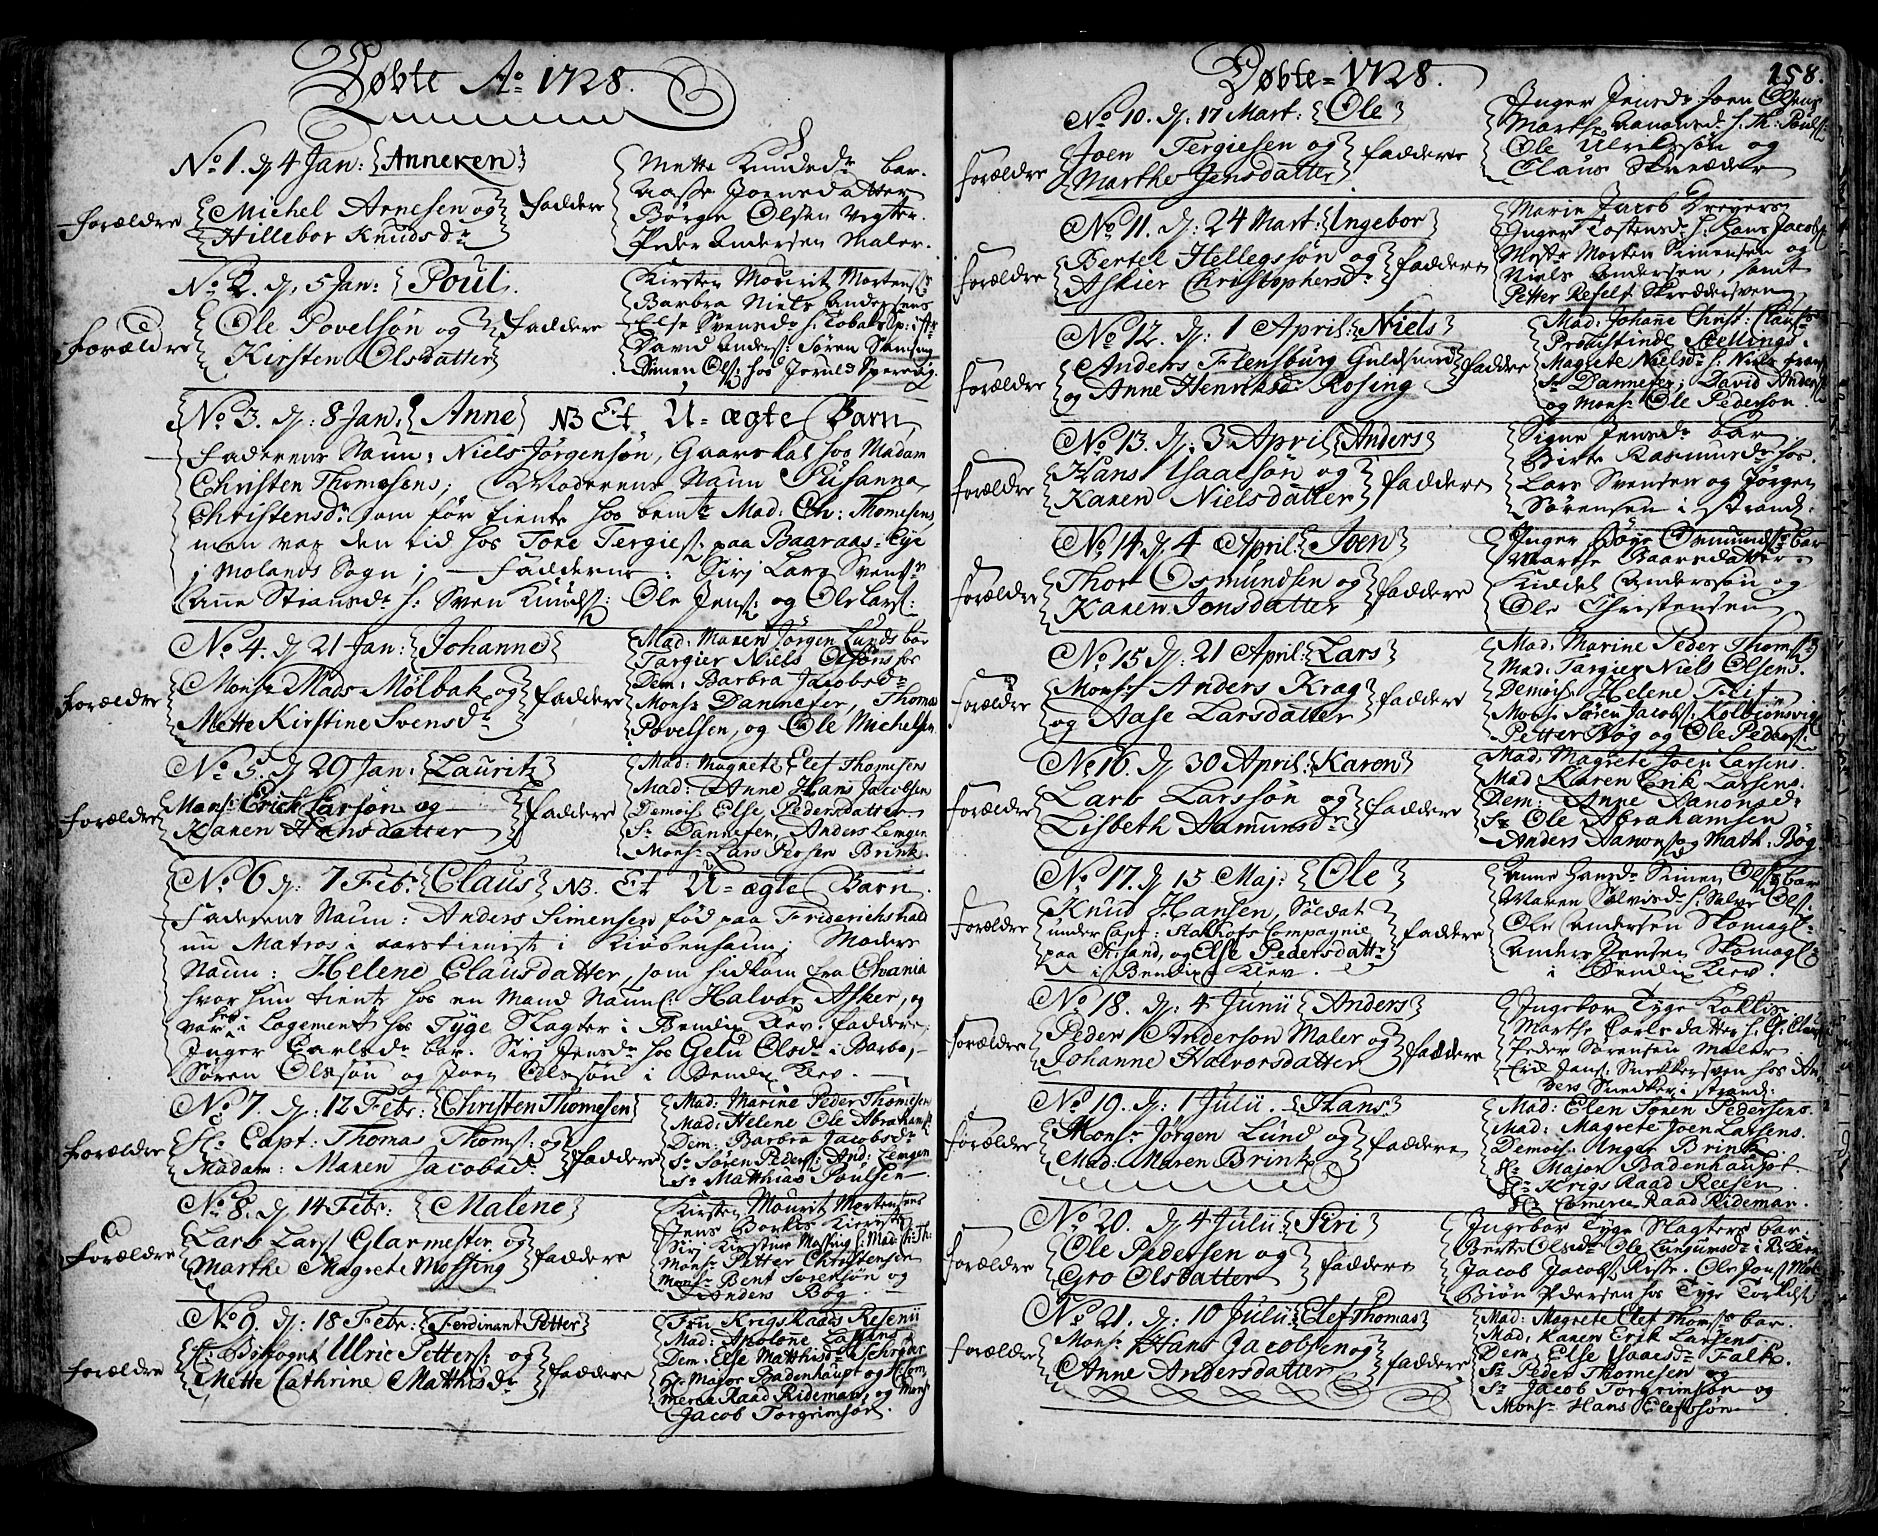 Døbte Ao 1728.
No 1. d. 4 Jan: Anneken
forældre
Michel Arnesen og
Hillebor Knudsdr
faddere
Mette Knudsdr bar.
Aasse Joensdatter
Børge Olsen Vegter.
Peder Andersen Maler.
No 2. d. 5 Jan: Poul.
forældre
Ole Povelsøn og
Kirsten Olsdatter
faddere
Kirsten Mourit Mortens
Barbra Niels Andersens
Else Svensdr h. Tobaks Sp:
David Anders: Søren
Simen Ols: hos Joruld
No 3. d. 8 Jan: Anne NB Et U=ægte Barn
Faderens Naun: Niels Jørgensøn, Gaarskal hos Madam
Christen Thomesens; Moderens Naun Susanna
Christensdr som før tiente hos bemte Mad: Ch: Thomesens,
men var den tid hos Tore Tergies: paa Baaraas=Eye
i Molands Sogn; Fadderne: Siri Lars Svens:
Anne Stiansdr h: Sven Knuds: Ole Jens: og Ole Lars:
No 4. d. 21 Jan: Johanne
forældre
Monsr Mads Mølbak og
Mette Kirstine Svensdr
faddere
Mad: Maren Jørgen Lunds bar
Targier Niels Olsøns hos
Dem: Barbra Jacobsdr
Monsr Dannefer, Thomas
Povelsen, og Ole Michelsen
No 5. d. 29 Jan: Lauritz
forældre
Monsr: Erich Larsøn og
Karen Hansdatter
faddere
Mad: Magrete Elef Thomesens
Mad: Anne Hans Jacobsen
Demois Else Pedersdatter
Sr Dannefer, Anders Lemgen
Monsr Lars Persen Brink.
No 6 d. 7 Febr: Claus NB. Et U=ægte Barn.
Faderens Naun: Anders Simensen fød paa Friderichshald
nu Matros i aarstieniste i Kiøbenhaun; Moders
Naun: Helene Clausdatter, som hidkom fra Chrania
hvor hun tiente hos en Mand Nauns: Halvor Asker, og
var her i Logement hos Tyge Slagter i Bendix Klev. faddere,
Inger Carlsdr bar. Siri Jensdr hos Gelu Olsdr i Barbo,
Søren Olssøn og Joen Olssøn i Bendix Klev.
No 7. d. 12 Febr: Christen Thomesen
forældre
Hr Capt: Thomas Thoms: og
Madam: Maren Jacobsdr
faddere
Mad: Marine Peder Thomesens
Mad: Helene Ole Abrahams:
Dem: Barbra Jacobsdr
Sr Søren Peders: And: Lemgen
Sr Matthias Poulsen
No 8. d. 14 Febr: Malene
forældre
Lars Lars: Glarmester og
Marthe Magrete Mossing
faddere
Kirsten Mourit Mortensens
Jens Borkis Kiereste
Siri Kirstine Mossing h: Mad: Ch: Th:
Monsr Petter Christensøn
Monsr Bent Sørensøn og
Anders Bøg.
No 9. d. 18 Febr: Ferdinant Petter
forældre
Hr Byfogut Ulric Petters: og
Mette Cathrine Matthisdr
faddere
Fru Krigsraads Resenii
Mad: Apolone
Dem: Else Matthisdr Schrøder
Hr Major Badenhaupt og H: Com
merce Raad Rideman, og Monsr
Jacob Torgrimsøn.
Døbte=1728.
158.
No 10. d. 17 Mart: Ole
forældre
Joen Tergiesen og
Marthe Jensdatter
faddere
Inger Jensdr Joen Olsens
Marthe Aanonsdr h. Th: Pouls
Ole Ulrikssøn og
Claus Skreæder
No 11. d. 24 Mart: Ingebor
forældre
Bertel Hellegssøn og
Askier Christophersdr
faddere
Marie Jacob Dreyers
Inger Tostensdr h. Hans Jacobs:
Mette Morten Simensen og
Niels Andersen, samt
Petter Refelt Skreddersven
No 12. d. 1 April: Niels
forældre
Anders Flensburg Guldsmid
og Anne Henrichsdr Rosing
faddere
Mad: Johane Christ: Claus:
Proustinde Stellings.
Magrete Nielsdr h. Niels
Sr Dannefer, David Anders:
og Monsr Ole Pedersøn
No 13. d. 3 April Anders
forældre
Hans Isaacsøn og
Karen Nielsdatter
faddere
Signe Jensdr bar
Birte Rasmusdr hos.
Lars Svensen og Jørgen
Sørensen i strand:
No 14 d. 4 April: Joen
forældre
Thor Osmundsen og
Karen Jonsdatter
faddere
Inger Bøye Osmunds: bar
Marthe Baarsdatter
Kiddel Anderssøn og
Ole Christensen
No 15 d. 21 April: Lars
forældre
Monsr: Anders Krag
og Aase Larsdatter
faddere
Mad: Marine Peder Thoms:
Mad: Targier Niels Olsens.
Demois: Helene Flit
Monsr Søren Jacobs: Kolbiønsvig
Petter Bøg og Ole Peders:
No 16. d. 30 April: Karen
forældre
Lars Larssøn og
Lisbeth Aamunsdr
faddere
Mad: Magrete Joen Larsens.
Mad Karen Erik Larsens.
Dem: Anne Aanonsdr
Sr Ole Abrahamsen
Anders Aanons: og Math. Bøg
No 17. d. 15 Maj: Ole
forældre
Knud Hansen, Soldat
under Capt: Stakhofs Compagnie
paa Ch:sand, og Else Pedersdatter
i Bendix Klev.
faddere
Anne Hansdr Simen Ols: bar
Maren Sølvisdr h: Salve Ols:
Ole Andersen Skomag:
Anders Jensen Skomag:
i Bendix Klev.
No 18. d. 4 Junii Anders
forældre
Peder Anderson Maler og
Johanne Halvorsdatter
faddere
Ingebor Tyge Kollis
Marthe Carlsdatter h: G: Claus
Peder Sørensen Maler
Erik Jans: Snekkersven hos An
ders Snedker i strand:
No 19. d. 1 Julii. Hans
forældre
Monsr Jørgen Lund og
Mad: Maren Brink
faddere
Mad: Elen Søren Pedersens
Mad: Magrete Joen Larsens.
Demois: Unger Brink
Hr Major Badenhaupt
Hr Krigs Raad Reesen
Hr Comerce Raad Rideman.
No 20. d. 4 Julii Siri
forældre
Ole Pedersen og
Gro Olsdatter
faddere
Ingebor Tyge Slagters bar.
Berte Olsdr Ole Lungumsdr i B: Klev
Jacob Jacobs: Riste. Ole Jons:
Biøn Pdersen hos Tyge Torkils:
No 21. d. 10 Julii Elef Thomas
forældre
Monsr Hans Jacobsen og
Anne Andersdatter
faddere
Mad: Magrete Elef Thoms: bar.
Mad: Karen Erik Larsens.
Dem: Else Isaacsdr Falk.
Sr Peder Thomesen og
Sr Jacob Torgrimsøn og
Monsr Hans Elefssøn